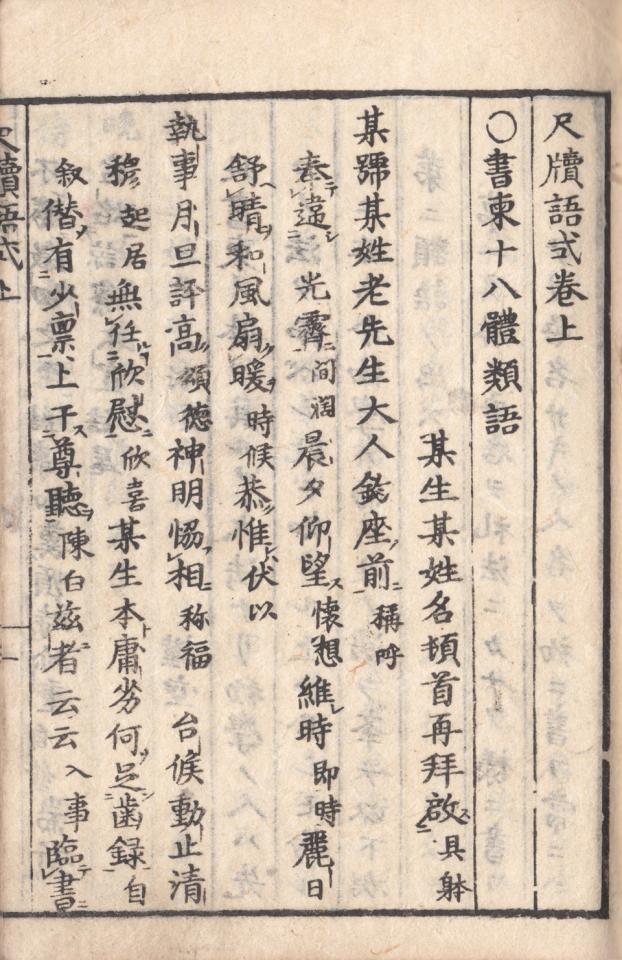 尺牘語式卷上
○書柬十八體類語
某生某姓名頓首再拜啟具躰
某號某姓老先生大人台座前稱呼
奉違光霽间濶晨夕仰望懷想維時即時麗日
舒晴和風扇暖時候恭惟伏以
執事月旦評高頌德神明恊相称福台候動止清
穆起居無任欣慰欣喜某生本庸劣何足齒録自
叙偕有少禀上干尊聽陳白茲者云云入事臨書
尺牘語式上